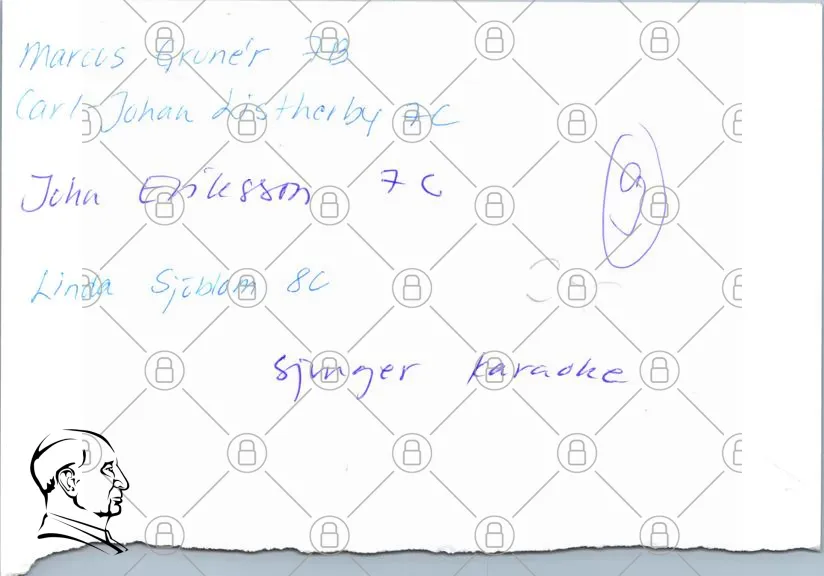 Marcus Grunér 7B
Carl-Johan Listherby 7C
9
John Eriksson 7C
Linda Sjöblom 8C
sjunger karaoke